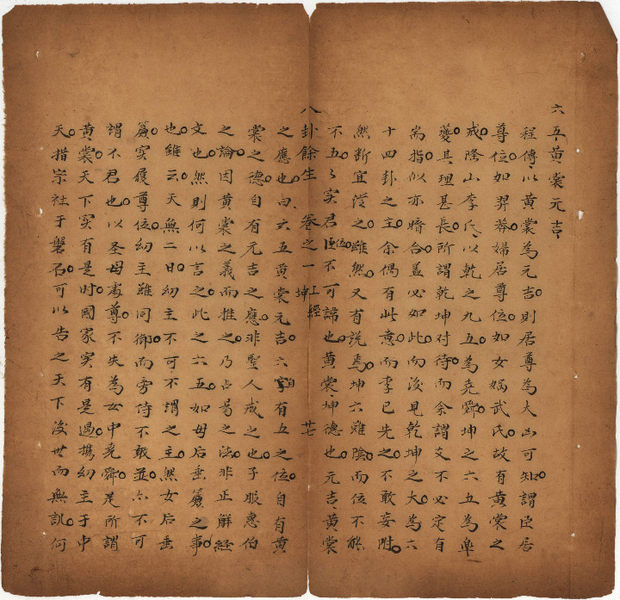 六五黃裳元吉
程傳以黃裳為元吉則居尊為大凶可知謂臣居
尊位如羿莽婦居尊位如女媧武氏故有黃裳之
戒隆山李氏以乾之九五為堯舜坤之六五為皐
夔其理甚長所謂乾坤对待而余謂文不必定有
耑指似亦暗合蓋必如此而後見乾坤之大為六
十四卦之主余偶有此意而李已先之不敢妄附
然断宜從之雖然又有說焉坤六雖陰而位不能
不五五實君位臣不可也黃裳坤德也元吉黃裳
八卦餘生 卷之一 上經 坤 廿七
之應也曰六五黃裳元吉六自有五之位自有黃
裳之德自有元吉之應非聖人戒之也子服惠伯
之論因黃裳之義而推之乃占易之法非正解經
文也然則何以言之此之六五如母后垂簾之事
也雖云天無二日幼主不可不謂之主然女后垂
簾实履尊位幼主雖同御而旁侍不敢並六不可
謂不君也以圣母當尊不失為女中堯舜是所謂
黃裳天下实有是时國家实有是遇攜幼主于中
天措宗社于磐石可以告之天下後世而無訊何